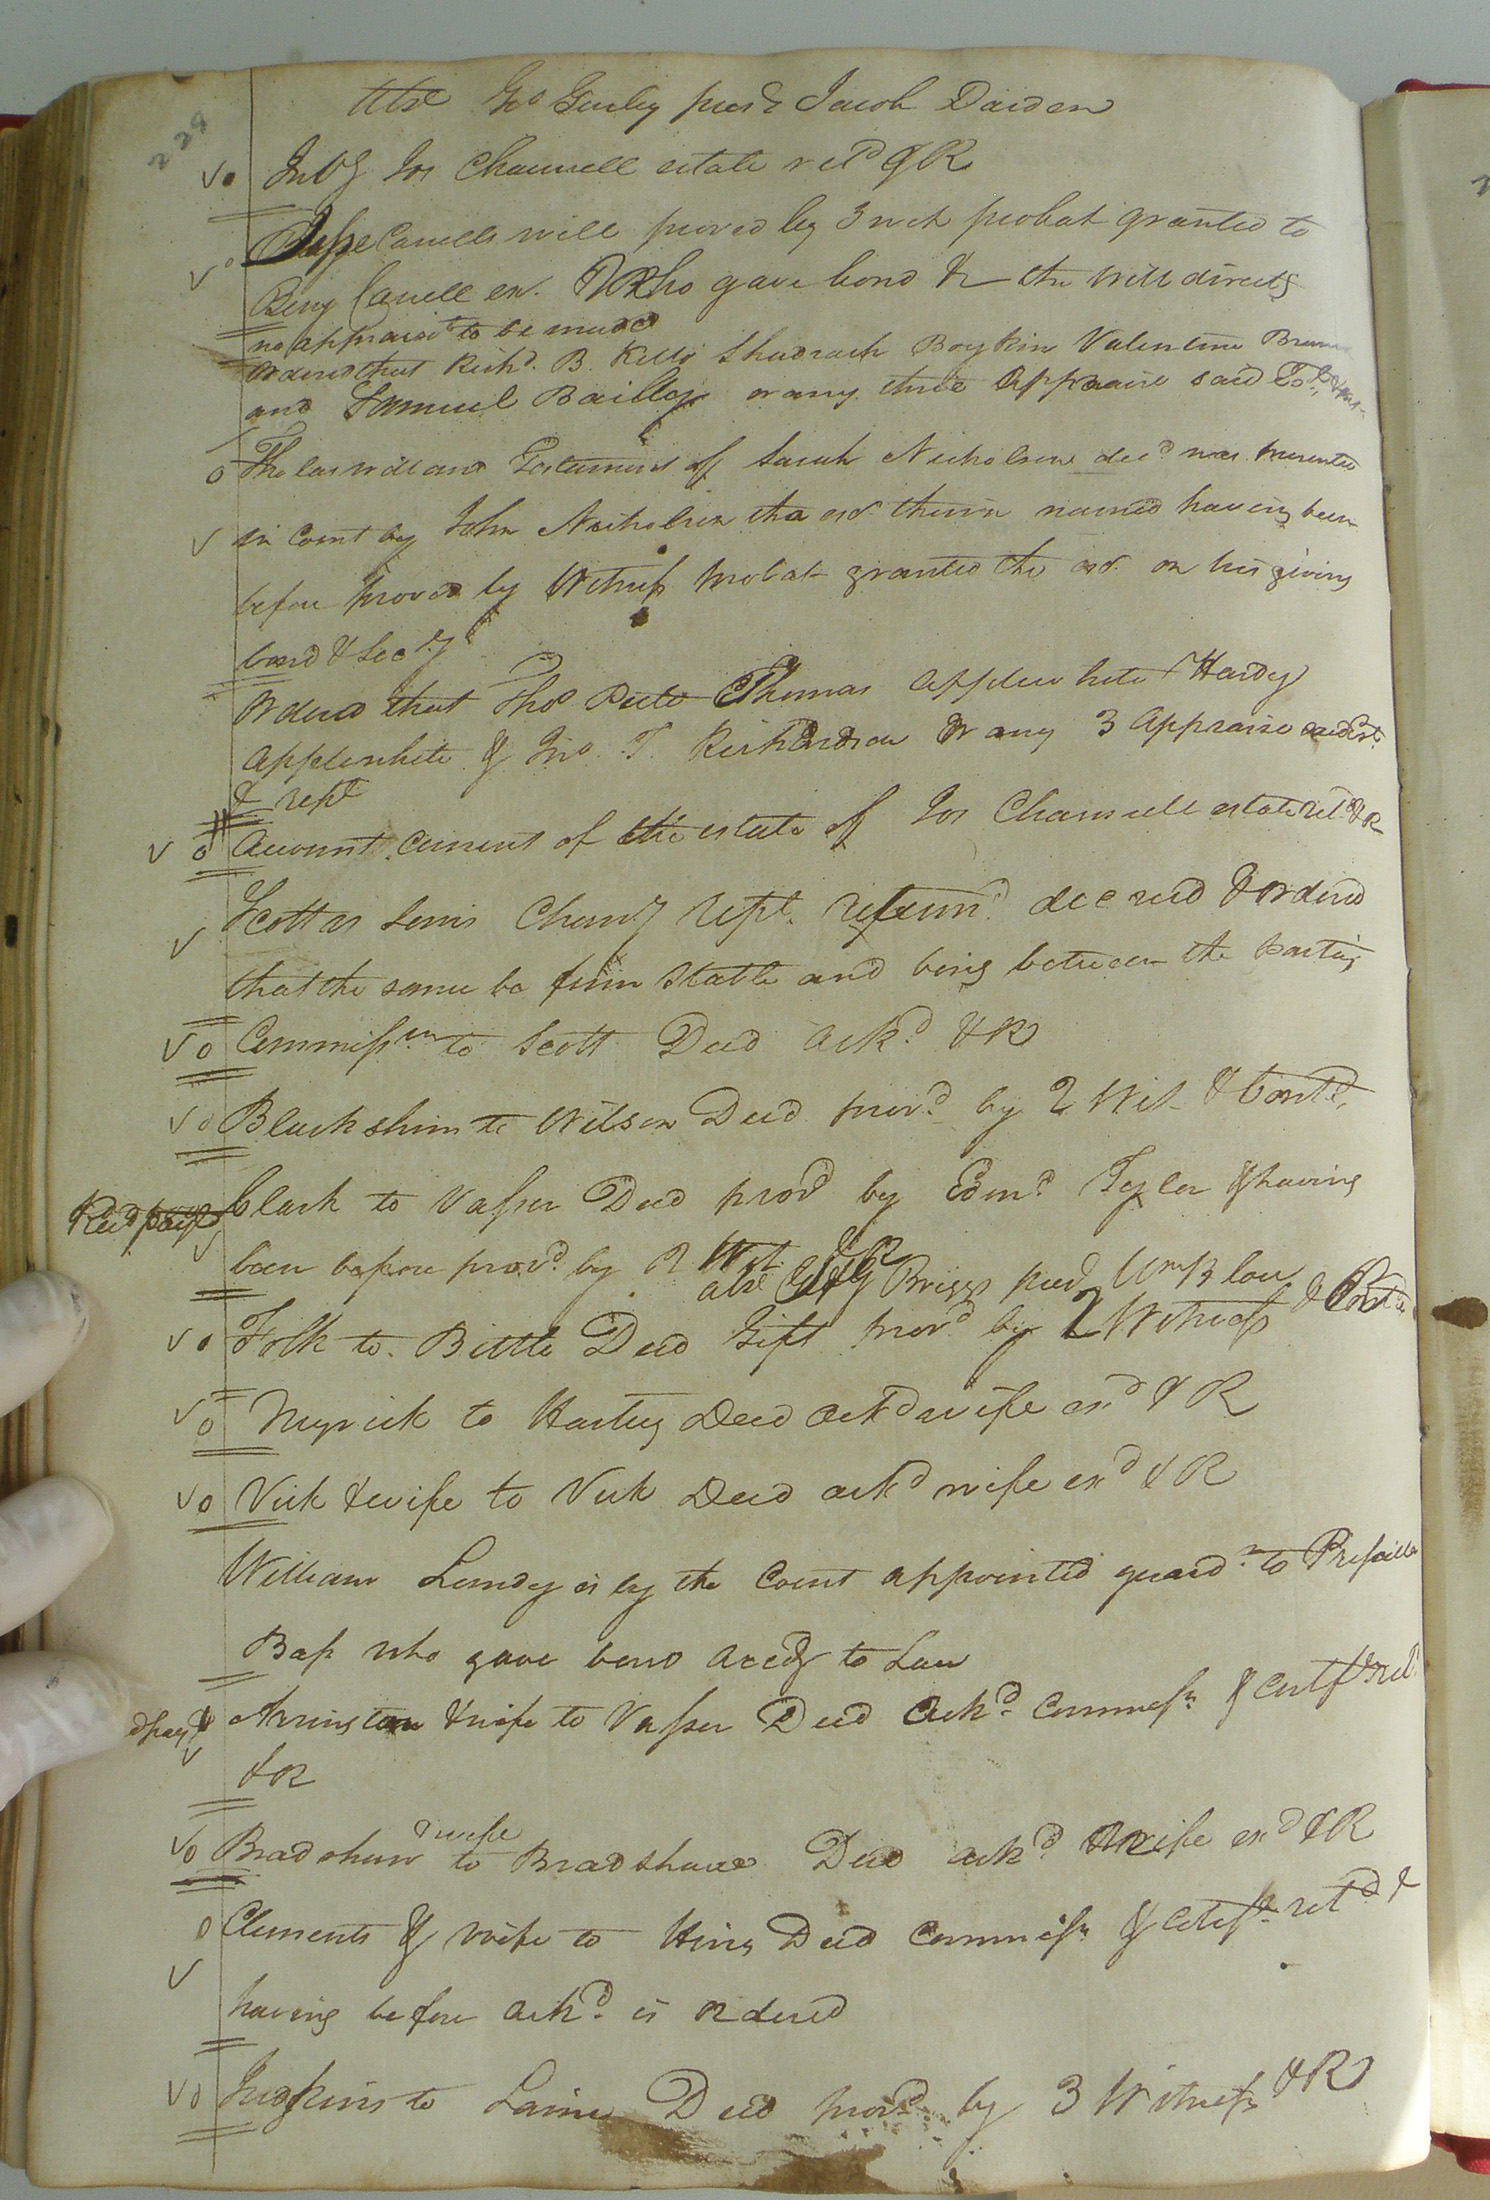 229
abse Jno Gurley pres't Jacob Darden
Invy Jos Channell estate ret'd & R
Jesse Carrells will proved by 3 wit probat granted to
Benj Carrell ex. Who gave bond & the will directs
no appraist to be made
Ordered that Rich'd. B. Kello Shadrach Boykin Valentine
and Samuel Bailley or any three Appraise said Est.
The las will and Testament of Sarah Nicholson dec'd was presented
in Court by John Nicholson the exr. therein named having been
before proved by Witness probat granted the exr. on his giving
bond & Sec'y
Ordered that Tho's Pete Thomas Applewhite Hardy
Applewhite & Jno. T. Richardson or any 3 Appraise said Est.
& rept
Account Current of the estate of Jos Channell estate ret. & R
Scott as Lewis Chan'y rept. return'd. decreed & ordered
that the same be firm stable and being between the parties
Commissrs to Scott Deed ack'd. & R
Blackshins to Wilson Deed prov'd. by 2 Wit & Cont'd.
Clark to Vasser Deed prov'd by Edm'd. Tyler & having
been before prov'd. by 2 Wit. & R
abse Briggs pres't Wm B low
Folk to. Bittle Deed Gift prov'd by 2 Witness & Cont'd
Myrick to Hartey Deed Ack'd wife ex'd & R
Vick & wife to Vick Deed ack'd wife ex'd & R
William Lundy is by the Court appointed guard'n. to Prissilla
Bass who gave bond accdg to Law
Arrington & wife to Vasser Deed Ack'd. Commissn. & Certf. & ret'd
& R
Bradshaw & wife to Bradshaw Deed ack'd. & wife ex'd & R
Clements & wife to Hines Deed Commissn. & Certf. ret'd &
having before ack'd. is ordered
Judkins to Laine Deed prov'd. by 3 Witness & R